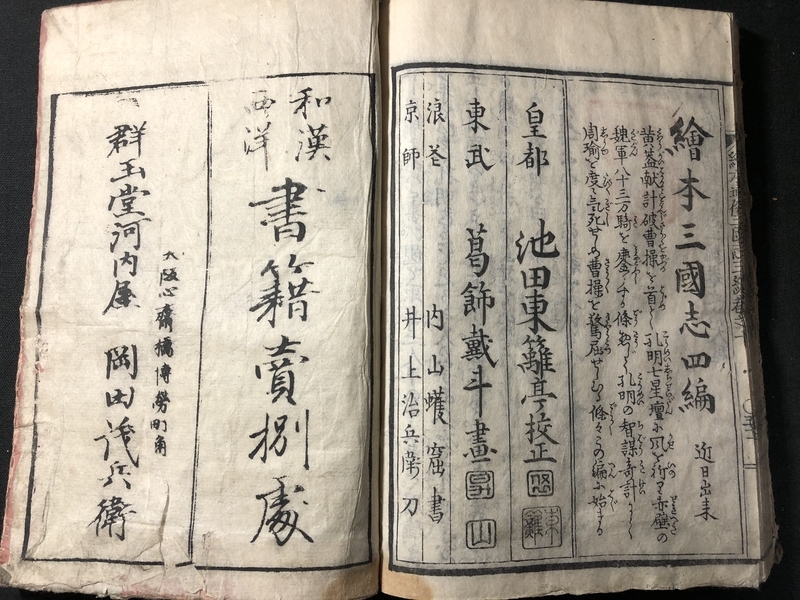 繪本三國志四編 近日出来
黄蓋献計破曹操を首とし孔明七星壇に風を祈り赤壁の
魏軍八十三万騎を
孔明の智謀奇計
周瑜を
曹操を
條々この編に始まる
皇都 池田東籬亭校正
東籬
東武 葛飾戴斗畫
浪華 内山蠖窟書
京師 井上治兵衛刀
和漢
西洋
書籍賣捌處
大阪心齋橋博勞町角
群玉堂河内屋 岡田茂兵衛